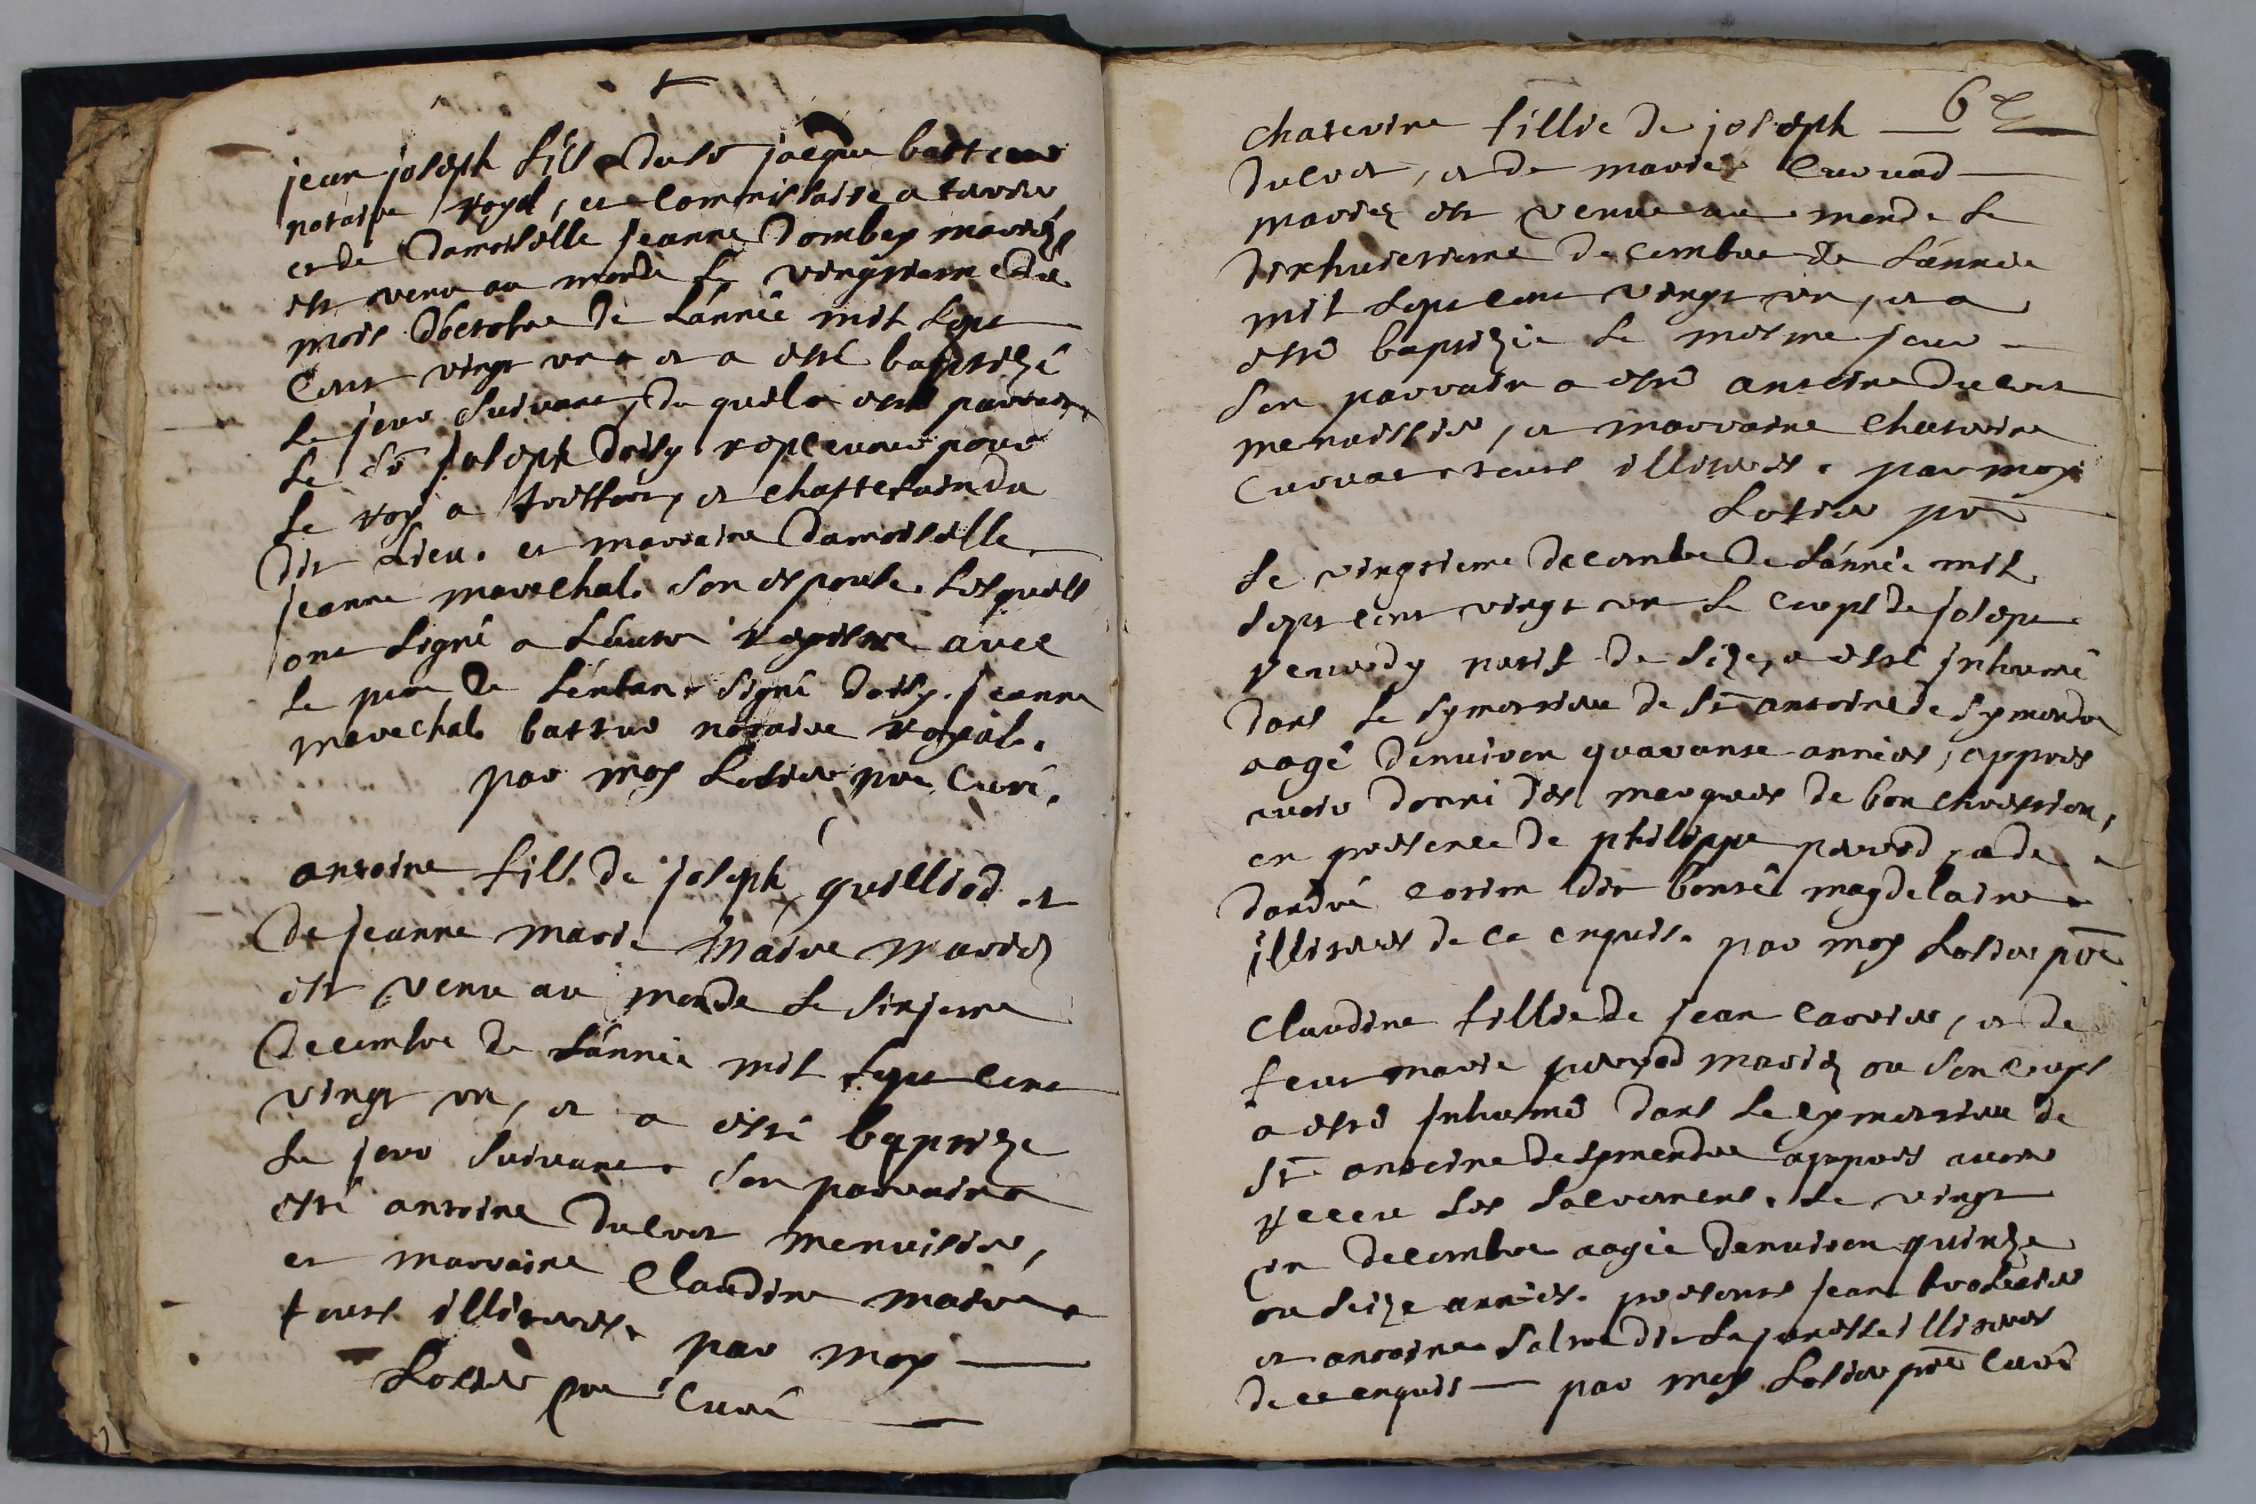 jean joseph fils du sr jacque battur
notaire royal, et commissaire a terrier
et de damoiselle jeanne dombey mariés
est venu au monde le vingtieme du
mois doctobre de lánnée mil sept
cent vingt un et a esté baptizé
le jour suivant, du quel a esté parrain
le sr joseph doisy recepveur pour
le roy a treffort, et chattelain du
dit lieu. et marraine damoiselle
jeanne marechal. son espouse. lesquels
ont signé a láutre registre avec
le pere de lénfant signé doisy. jeanne
marechal. battur notaire royal.
par moy pre curé.
antoine fils de joseph quilliod et
de jeanne marie maire mariez
est venu au monde le sixieme
decembre de lánnée mil sept cent
vingt un, et a esté baptizé
le jour suivant. son parrain a
esté antoine ducret menuisier,
et marraine claudine maire
tous illiteres. par moy
pre curé
62
chaterine fillie de joseph
ducret, et de marie
mariez est venue au monde le
dixhuictieme decembre de lánnée
mil sept cent vingt un, et a
esté baptizée le mesme jour
son parrain a esté antoine ducret
menuisier, et marraine chaterine
tous illiteres. par moy
pre
le vingtieme decembre de lánnée mil
sept cent vingt un le corps de joseph
natif de size, a esté jnhumé
dans le symettiere de st antoine de symandre
aagé denviron quarante années, appres
avoir donné des marques de bon chrestien,
en presence de philippe perrod, et de
dandré cosin dit bonté magdelaine
illiteres de ce enquis. par moy pre
claudine fillie de jean carrier, et de
feue marie perrod mariez ou son corps
a esté jnhumé dans le cymettiere de
st antoine de symandre appres avoir
receu les sacrements. le vingt
un decembre aagée denviron quinze
ou seize années. presents jean
et antoine illiteres
de ce enquis par moy pre curé